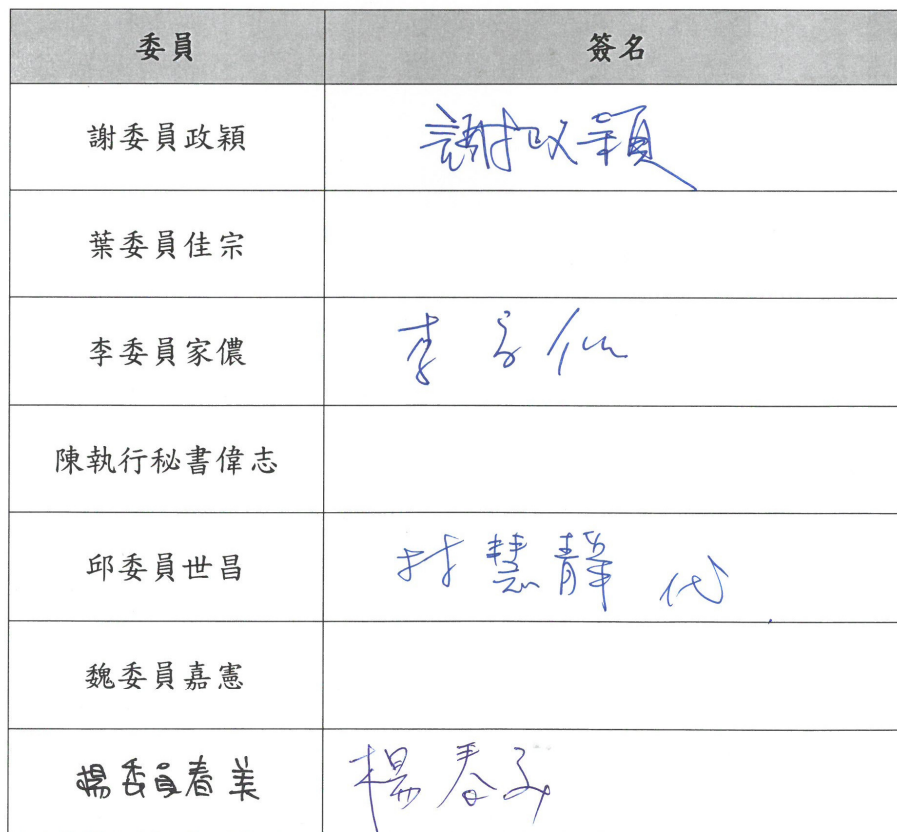 委員 簽名
謝委員政穎 謝政穎
葉委員佳宗
李委員家儂 李家儂
陳執行秘書偉志
邱委員世昌 林慧靜 代
魏委員嘉憲
楊委員春美 楊春美